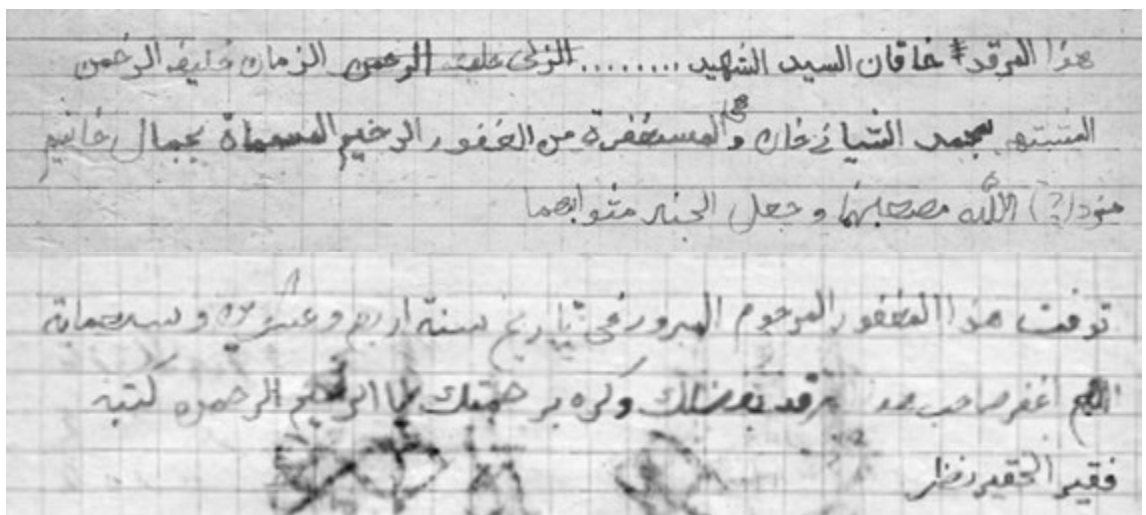 هذا المرقد خاقان السيد الشهيد ........ الزمان خليفة الرحمن
المشتهر بمحمد الشيباني خان و هي المستغفرة من الغفور الرحيم المسماة بجمال خانيم
(?) الله مضجعهما و جعل الجنة مثواهما
توفت هذا المغفور المرحوم المبرور فى تاريخ سنة اربع و عشرين و تسعماية
اللهم اغفر صاحب هذا بفضلك وكرم برحمتك يا الرحيم الرحمن كتبه
فقير الحقير نظر